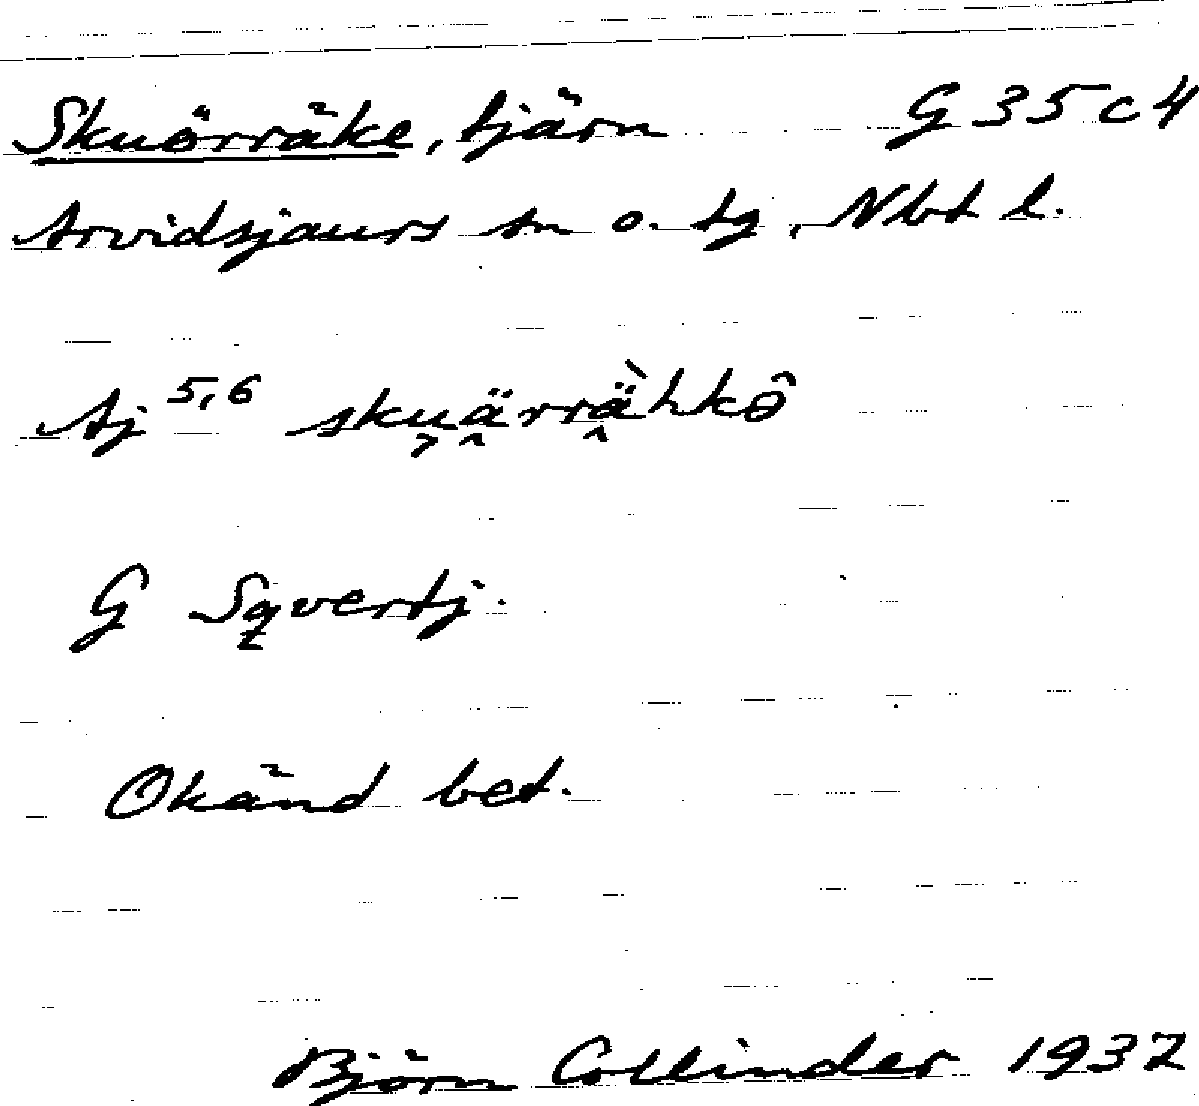 Skuörräke, tjärn G 35 c 4
Arvidsjaurs sn o. tg, Nbt l.
Aj 5,6 skuärrähkô
G Sqvertj.
Okänd bet.
Björn Collinder 1937